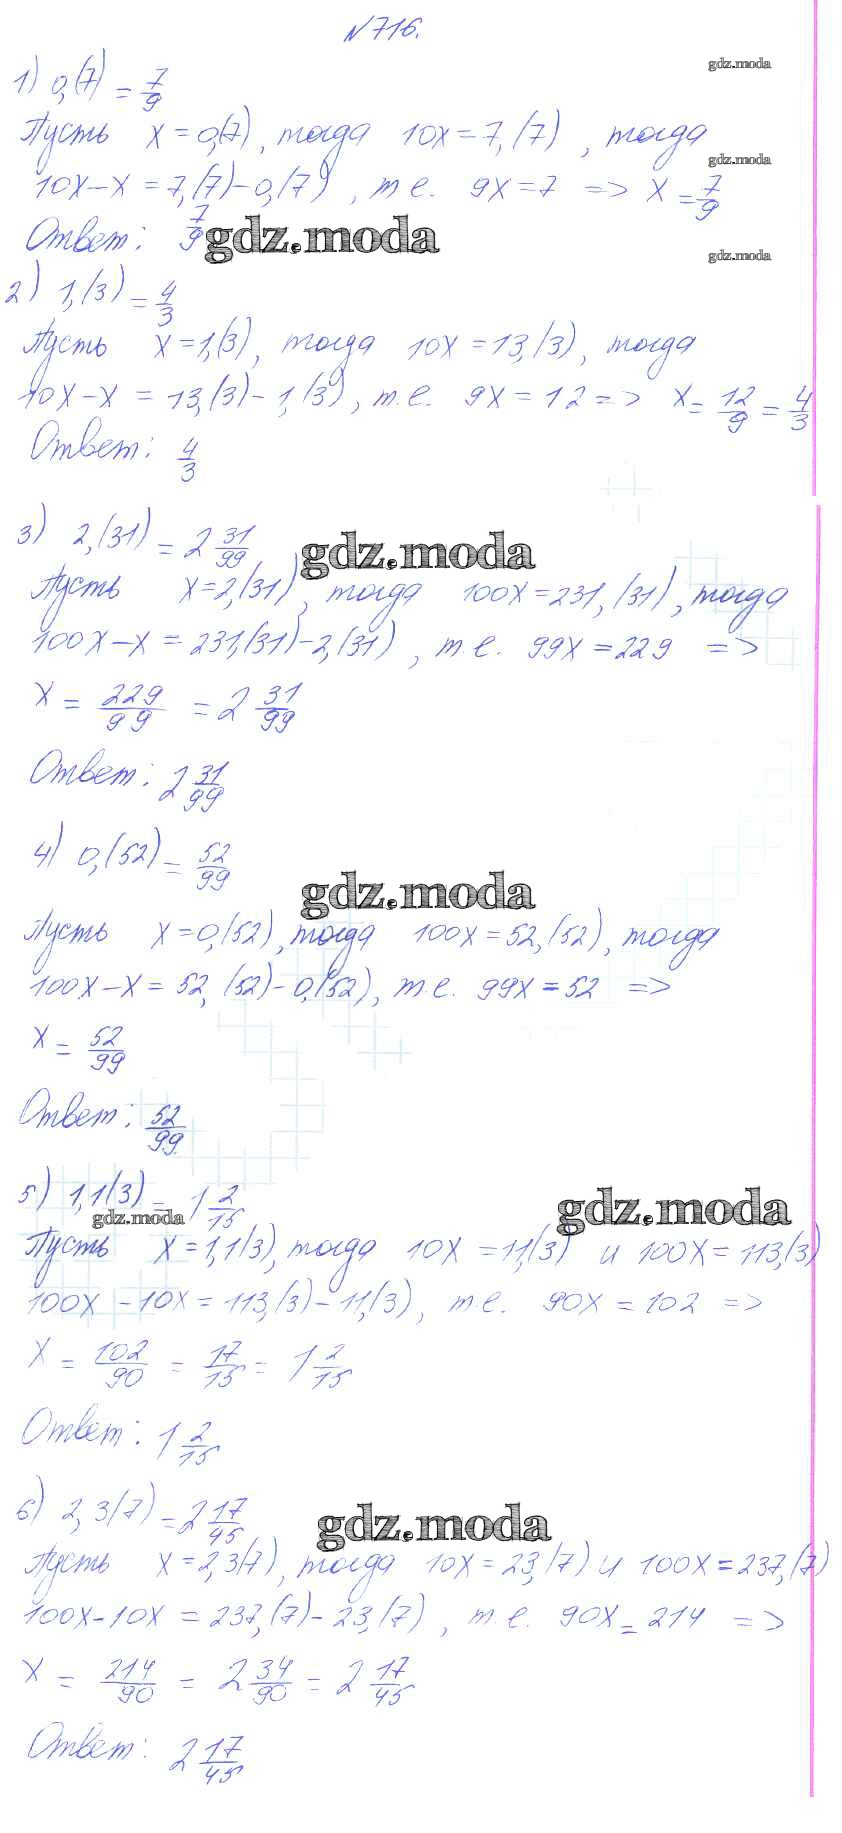 №716.
gdz.moda
1) 0,(7) = 7/9
Пусть x = 0,(7), тогда 10x = 7,(7), тогда
gdz.moda
10x − x = 7,(7) − 0,(7), т.е. 9x = 7 => x = 7/9
Ответ: 7/9
gdz.moda
gdz.moda
2) 1,(3) = 4/3
Пусть x = 1,(3), тогда 10x = 13,(3), тогда
10x − x = 13,(3) − 1,(3), т.е. 9x = 12 => x = 12/9 = 4/3
Ответ: 4/3
3) 2,(31) = 2 31/99
gdz.moda
Пусть x = 2,(31), тогда 100x = 231,(31), тогда
100x − x = 231,(31) − 2,(31), т.е. 99x = 229 =>
x = 229/99 = 2 31/99
Ответ: 2 31/99
4) 0,(52) = 52/99
gdz.moda
Пусть x = 0,(52), тогда 100x = 52,(52), тогда
100x − x = 52,(52) − 0,(52), т.е. 99x = 52 =>
x = 52/99
Ответ: 52/99
5) 1,1(3) = 1 2/15
gdz.moda
gdz.moda
Пусть x = 1,1(3), тогда 10x = 11,(3) и 100x = 113,(3)
100x − 10x = 113,(3) − 11,(3), т.е. 90x = 102 =>
x = 102/90 = 17/15 = 1 2/15
Ответ: 1 2/15
6) 2,3(7) = 2 17/45
gdz.moda
Пусть x = 2,3(7), тогда 10x = 23,(7) и 100x = 237,(7)
100x − 10x = 237,(7) − 23,(7), т.е. 90x = 214 =>
x = 214/90 = 2 34/90 = 2 17/45
Ответ: 2 17/45